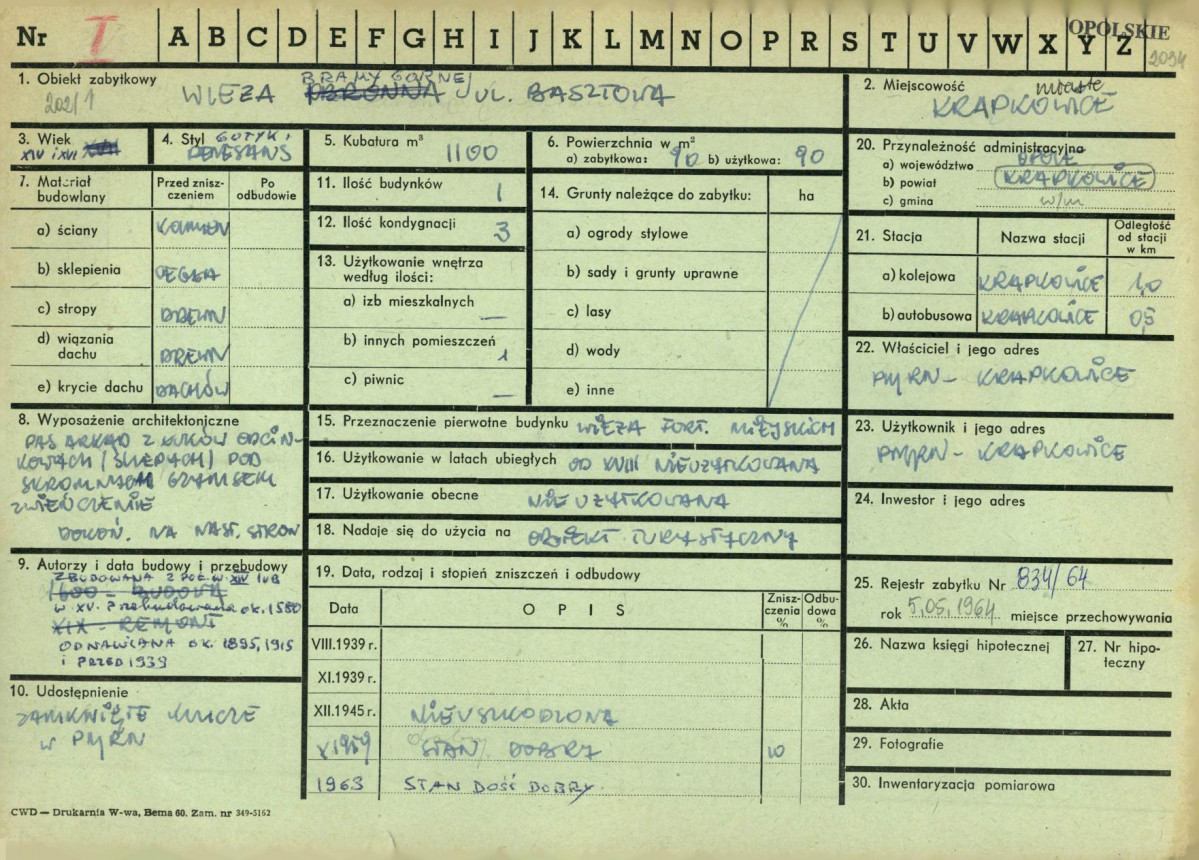 Nr I A B C D E F G H I J K L M N O P R S T U V W X Y Z OPOLSKIE
2094
1. Obiekt zabytkowy
202/1
BRAMY GÓRNEJ
WIEŻA OBRONNA UL. BASZTOWA
2. Miejscowość miasto
KRAPKOWICE
3. Wiek
XIV i XVI XVII
4. Styl GOTYK i
RENESANS
5. Kubatura m³ 1100
6. Powierzchnia w m²
a) zabytkowa: 90 b) użytkowa: 90
20. Przynależność administracyjna
a) województwo OPOLE
b) powiat KRAPKOWICE
c) gmina w/m
7. Materiał budowlany
Przed zniszczeniem
Po odbudowie
a) ściany KAMIEŃ
b) sklepienia CEGŁA
c) stropy DREWN
d) wiązania dachu DREWN
e) krycie dachu DACHÓW
11. Ilość budynków 1
12. Ilość kondygnacji 3
13. Użytkowanie wnętrza
według ilości:
a) izb mieszkalnych —
b) innych pomieszczeń 1
c) piwnic —
14. Grunty należące do zabytku: ha
a) ogrody stylowe
b) sady i grunty uprawne
c) lasy
d) wody
e) inne
21. Stacja Nazwa stacji Odległość od stacji w km
a) kolejowa KRAPKOWICE 1,0
b) autobusowa KRAPKOWICE 0,5
22. Właściciel i jego adres
PMRN - KRAPKOWICE
8. Wyposażenie architektoniczne
PAS ARKAD Z ŁUKÓW ODCIN-
KOWYCH (ŚLEPYCH) POD
SKROMNYM GZYMSEM
ZWIEŃCZENIE
DOKOŃ. NA NAST. STRON
15. Przeznaczenie pierwotne budynku WIEŻA FORT. MIEJSKICH
16. Użytkowanie w latach ubiegłych OD XVIII NIEUŻYTKOWANA
17. Użytkowanie obecne NIEUŻYTKOWANA
18. Nadaje się do użycia na OBIEKT TURYSTYCZNY
23. Użytkownik i jego adres
PMRN - KRAPKOWICE
24. Inwestor i jego adres
9. Autorzy i data budowy i przebudowy
ZBUDOWANA Z POCZ. W. XIV LUB
1600 - BUDOWA
w XV. Przebudowana ok. 1580
XIX - REMONT
ODNAWIANA OK. 1895, 1915
i PRZED 1939
10. Udostępnienie
ZAMKNIĘTE KLUCZE
W PMRN
19. Data, rodzaj i stopień zniszczeń i odbudowy
Data OPIS Zniszczenia % Odbudowa %
VIII.1939 r.
XI.1939 r.
XII.1945 r. NIEUSZKODZONA
X 1959 STAN DOBRY 10
1963 STAN DOŚĆ DOBRY
25. Rejestr zabytku Nr 834/64
rok 5.05.1964 miejsce przechowywania
26. Nazwa księgi hipotecznej
27. Nr hipoteczny
28. Akta
29. Fotografie
30. Inwentaryzacja pomiarowa
CWD — Drukarnia W-wa, Bema 60. Zam. nr 349-5162